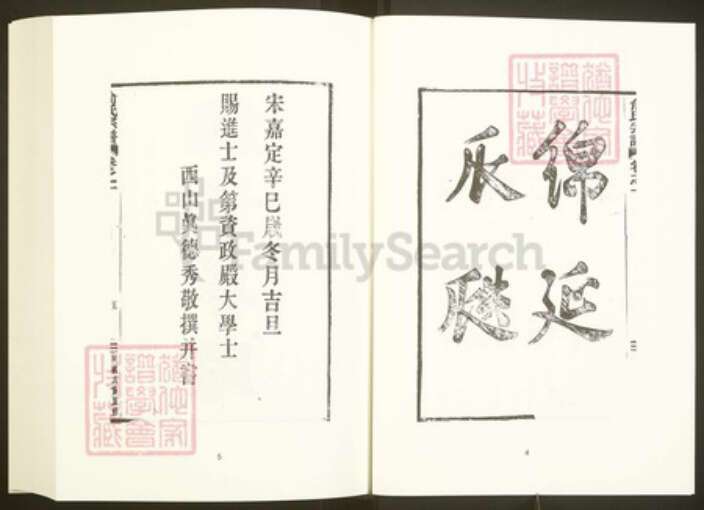 綿延
瓜瓞
三
4
宋嘉定辛巳歲冬月吉旦
賜進士及第資政殿大學士
西山眞德秀敬撰并書
五
5
FamilySearch